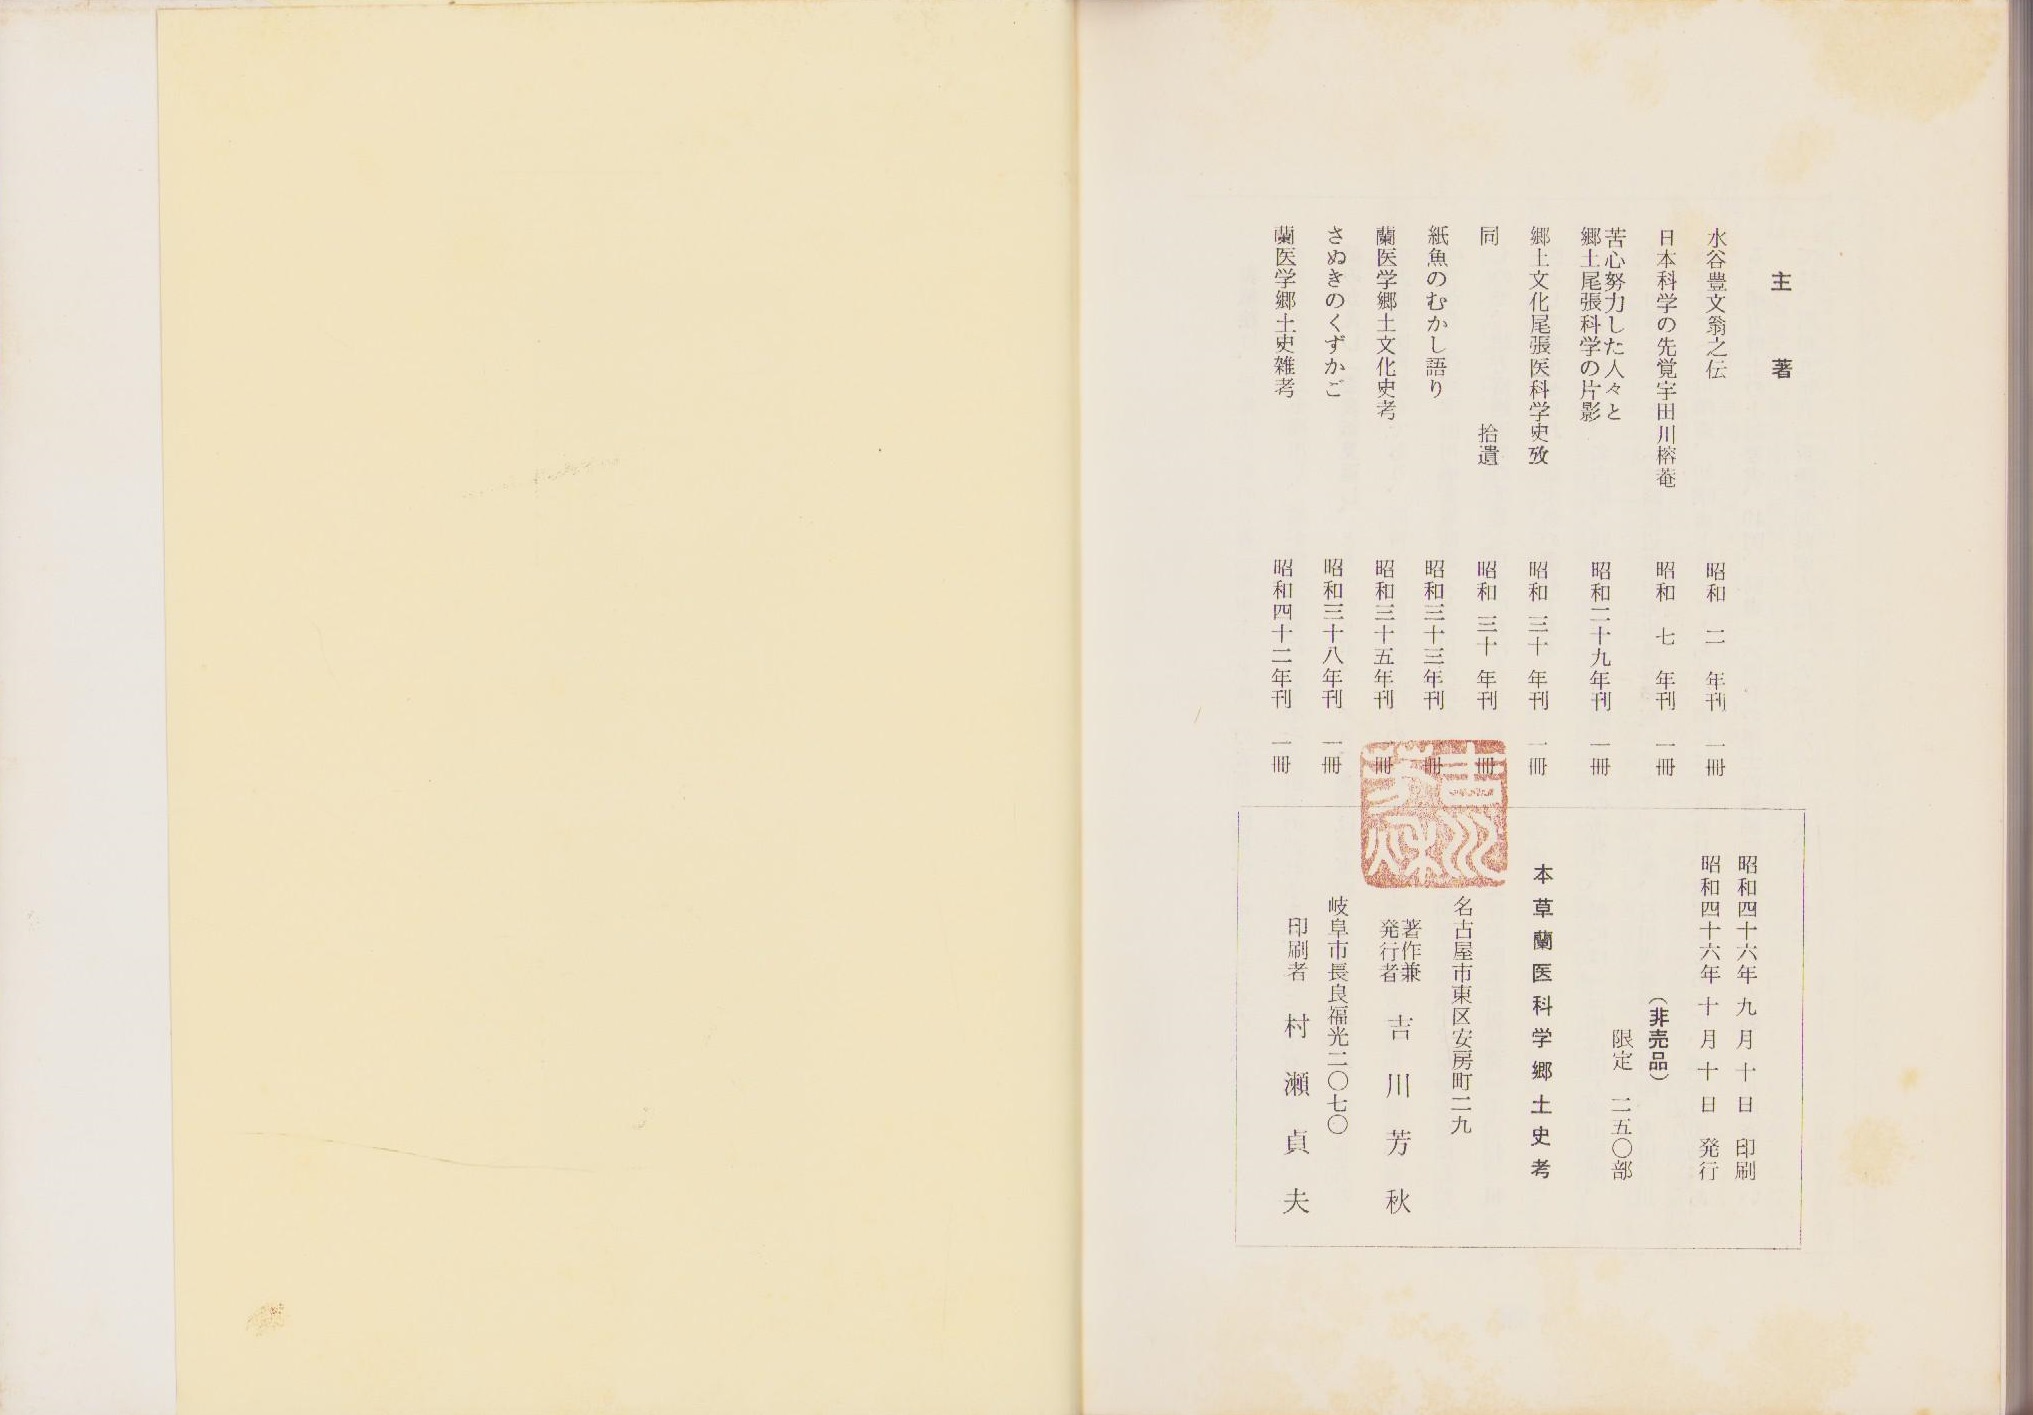 主著
水谷豊文翁之伝　昭和二年刊　一冊
日本科学の先覚宇田川榕菴　昭和七年刊　一冊
苦心努力した人々と
郷土尾張科学の片影　昭和二十九年刊　一冊
郷土文化尾張医科学史攷　昭和三十年刊　一冊
同　拾遺　昭和三十年刊　一冊
紙魚のむかし語り　昭和三十三年刊　一冊
蘭医学郷土文化史考　昭和三十五年刊　一冊
さぬきのくずかご　昭和三十八年刊　一冊
蘭医学郷土史雑考　昭和四十二年刊　一冊
昭和四十六年九月十日　印刷
昭和四十六年十月十日　発行
（非売品）
限定　二五〇部
本草蘭医科学郷土史考
名古屋市東区安房町二九
著作兼
発行者　吉川芳秋
岐阜市長良福光二〇七〇
印刷者　村瀬貞夫
吉川
芳秋